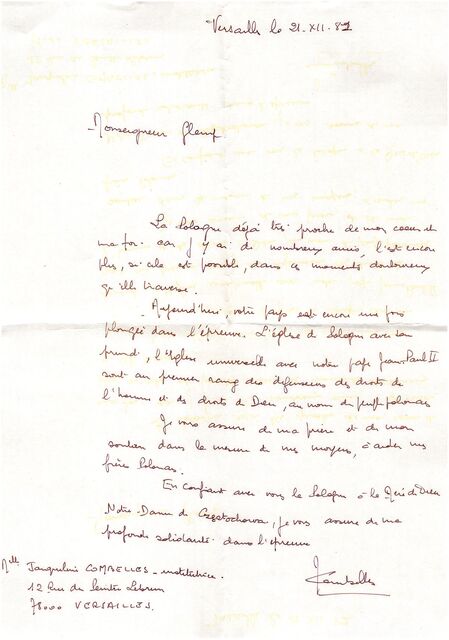 Versailles le 21.XII.81
Monseigneur Glemp
La Pologne déjà très proche de mon coeur et
ma foi car j'y ai de nombreux amis, l'est encore
plus, si cela est possible, dans ces moments douloureux
qu'elle traverse.
Aujourd'hui, votre pays est encore une fois
plongée dans l'épreuve. L'église de Pologne avec son
primat, l'Eglise universelle avec notre pape Jean-Paul II
sont au premier rang des défenseurs des droits de
l'homme et des droits de Dieu, au nom du peuple polonais
Je vous assure de ma prière et de mon
soutien dans la mesure de mes moyens, à aider nos
frères Polonais.
En confiant avec vous la Pologne à la Mère de Dieu
Notre-Dame de Częstochowa, je vous assure de ma
profonde solidarité dans l'épreuve
Melle Jacqueline COMBELLES - institutrice.
12 Rue du Peintre Lebrun
78000 VERSAILLES.
JCombelles